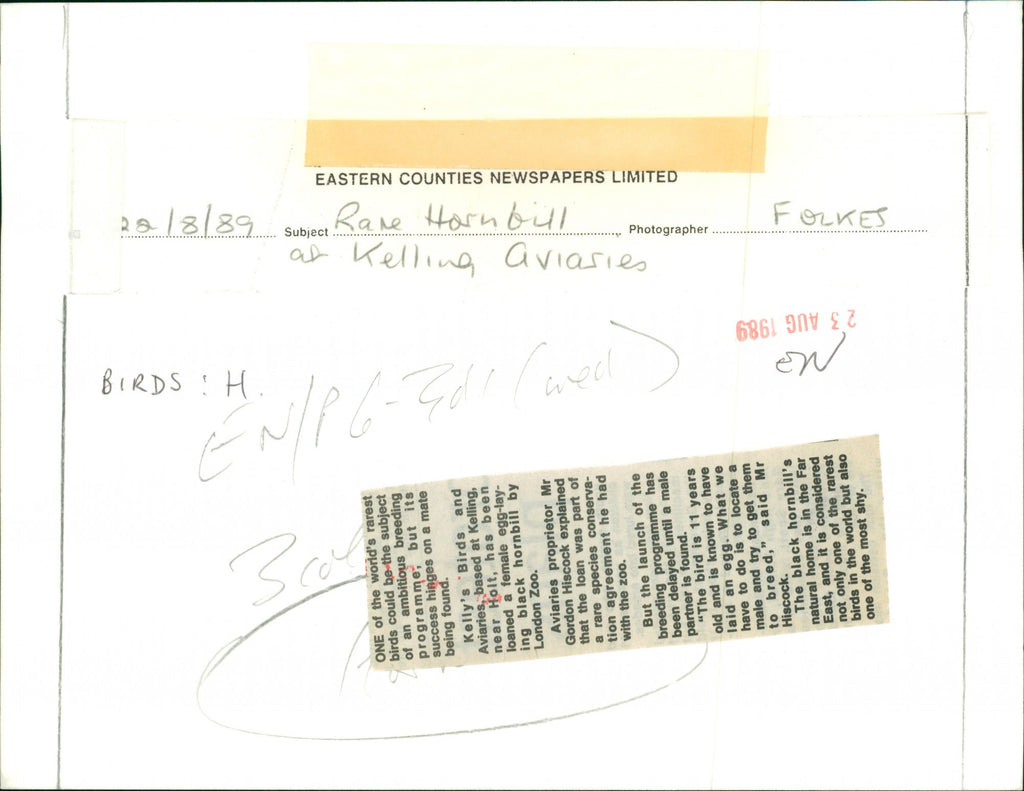 EASTERN COUNTIES NEWSPAPERS LIMITED
22/8/89 Subject Rare Hornbill Photographer FOLKES
at Kelling Aviaries
23 AUG 1989
EN
BIRDS : H.
EN/P6-3dl (wed)
3col
ONE of the world's rarest
birds could be the subject
of an ambitious breeding
programme, but its
success hinges on a mate
being found.
Kelly's Birds and
Aviaries, based at Kelling,
near Holt, has been
loaned a female egg-lay-
ing black hornbill by
London Zoo.
Aviaries proprietor Mr
Gordon Hiscock explained
that the loan was part of
a rare species conserva-
tion agreement he had
with the zoo.
But the launch of the
breeding programme has
been delayed until a male
partner is found.
"The bird is 11 years
old and is known to have
laid an egg. What we
have to do is to locate a
male and try to get them
to breed," said Mr
Hiscock.
The black hornbill's
natural home is in the Far
East, and it is considered
not only one of the rarest
birds in the world but also
one of the most shy.